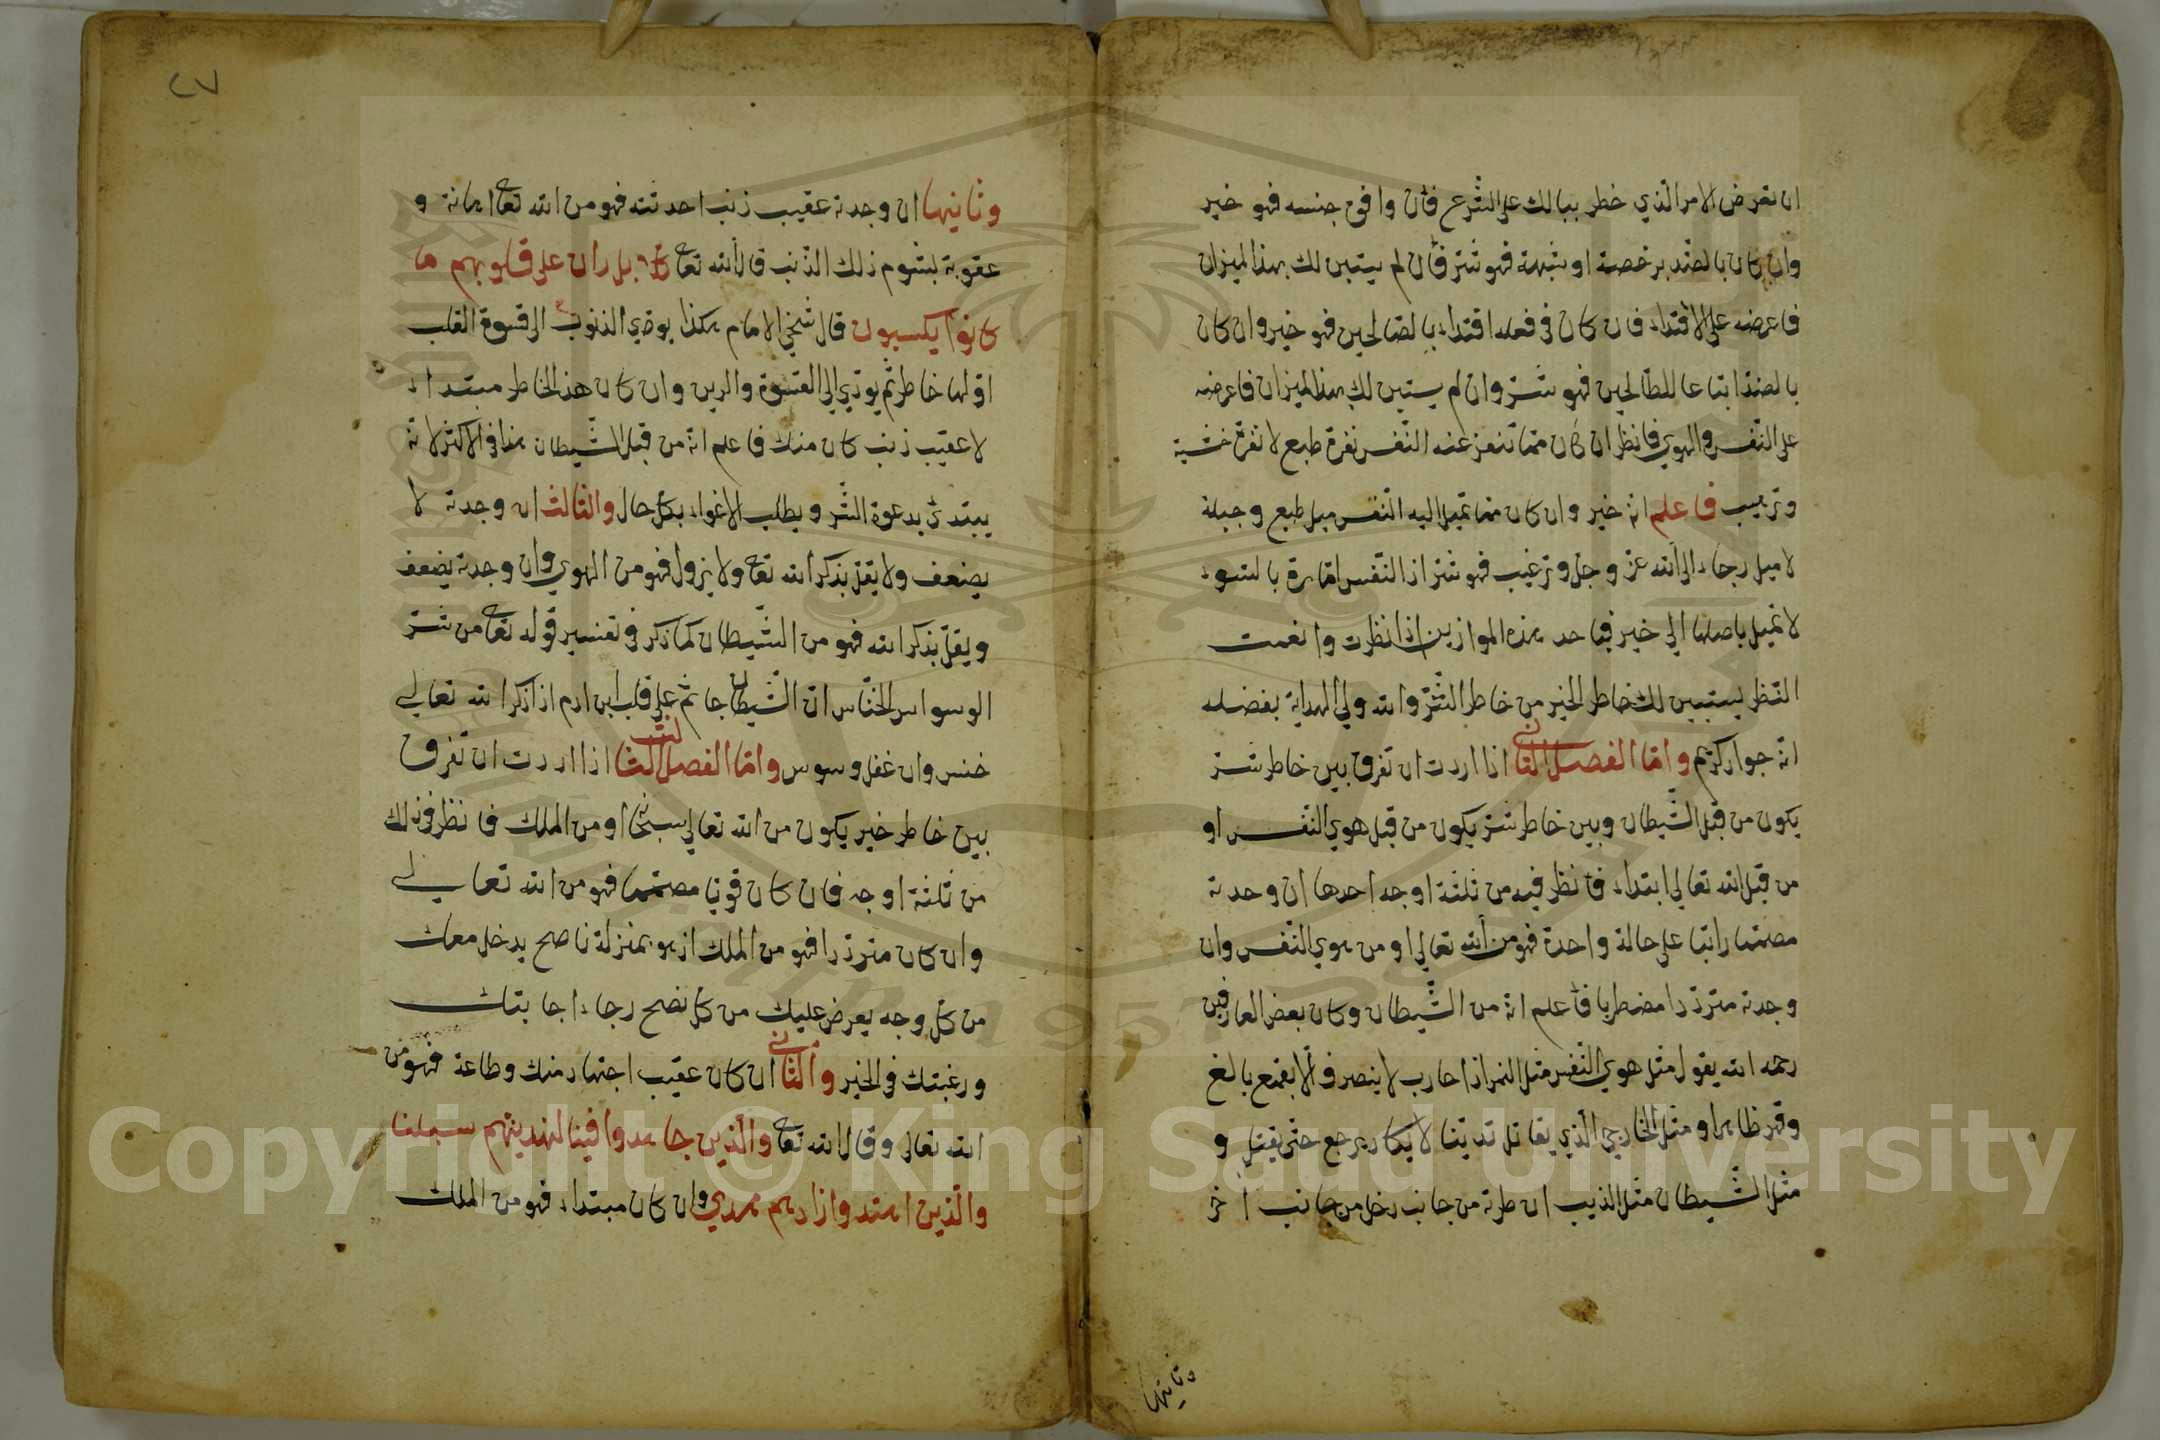 ان تعرض الامر الذي خطر ببالك على الشرع فان وافق جنسه فهو خير
وان كان بالضد برخصة او شبهة فهو شر فان لم يستبن لك بهذا الميزان
فاعرضه على الاقتداء فان كان في فعله اقتداء بالصالحين فهو خير وان كان
بالضد اتباعا للطالحين فهو شر وان لم يستبن لك بهذا الميزان فاعرضه
على النفس والهوي فانظر ان كان مما تنفر عنه النفس نفرة طبع لا نفرة خشية
وترهيب فاعلم انه خير وان كان مما تميل اليه النفس ميل طبع وجبلة
لا ميل رجاء الى الله عز وجل وترغيب فهو شر اذ النفس امارة بالسوء
لا تميل باصلها الي خير فباحد بهذه الموازين اذا نظرت وانعمت
النظر يستبين لك خاطر الخير من خاطر الشر والله ولي الهداية بفضله
انه جواد كريم واما الفصل الثاني اذا اردت ان تفرق بين خاطر شر
يكون من قبل الشيطان وبين خاطر شر يكون من قبل هوي النفس او
من قبل الله تعالي ابتداء فانظر فيه من ثلثة اوجه احدها ان وجدته
مصمما راتبا على حالة واحدة فهو من الله تعالي او من هوي النفس وان
وجدته مترددا مضطربا فاعلم انه من الشيطان وكان بعض العارفين
رحمه الله يقول مثل هوي النفس مثل النمر اذا حارب لا ينصرف الا بقمع بالغ
وقهر ظاهر او مثل الخارجي الذي يقاتل تدينا لا يكاد يرجع حتى يقتل و
مثل الشيطان مثل الذيب ان طردته من جانب دخل من جانب اخر
وثانيها
٢٧
وثانيها ان وجدته عقيب ذنب احدثته فهو من الله تعا اهانة و
عقوبة بشوم ذلك الذنب قال الله تعا كلا بل ران على قلوبهم ما
كانوا يكسبون قال شيخي الامام هكذا يودي الذنوب الى قسوة القلب
اولها خاطر ثم يودي الي القسوة والرين وان كان هذا الخاطر مبتداء
لا عقيب ذنب كان منك فاعلم انه من قبل الشيطان هذا في الاكثر لانه
يبتدئ بدعوة الشر ويطلب الاغواء بكل حال والثالث ان وجدته لا
يضعف ولا يقل بذكر الله تعا ولا يزول فهو من الهوي وان وجدته يضعف
ويقل بذكر الله فهو من الشيطان كما ذكر في تفسير قوله تعا من شر
الوسواس الخناس ان الشيطان جاثم على قلب ابن ادم اذا ذكر الله تعالي
خنس وان غفل وسوس واما الفصل الثالث اذا اردت ان تفرق
بين خاطر خير يكون من الله تعالي سبحانه او من الملك فانظر في ذلك
من ثلثة اوجه فان كان قويا مصمما فهو من الله تعالي
وان كان مترددا فهو من الملك اذ هو بمنزلة ناصح يدخل معك
من كل وجه يعرض عليك من كل نصح رجاء اجابتك
ورغبتك في الخير والثاني ان كان عقيب اجتهاد منك وطاعة فهو من
الله تعالي وقال الله تعا والذين جاهدوا فينا لنهدينهم سبلنا
والذين اهتدوا زادهم هدي وان كان مبتداء فهو من الملك
Copyright © King Saud University